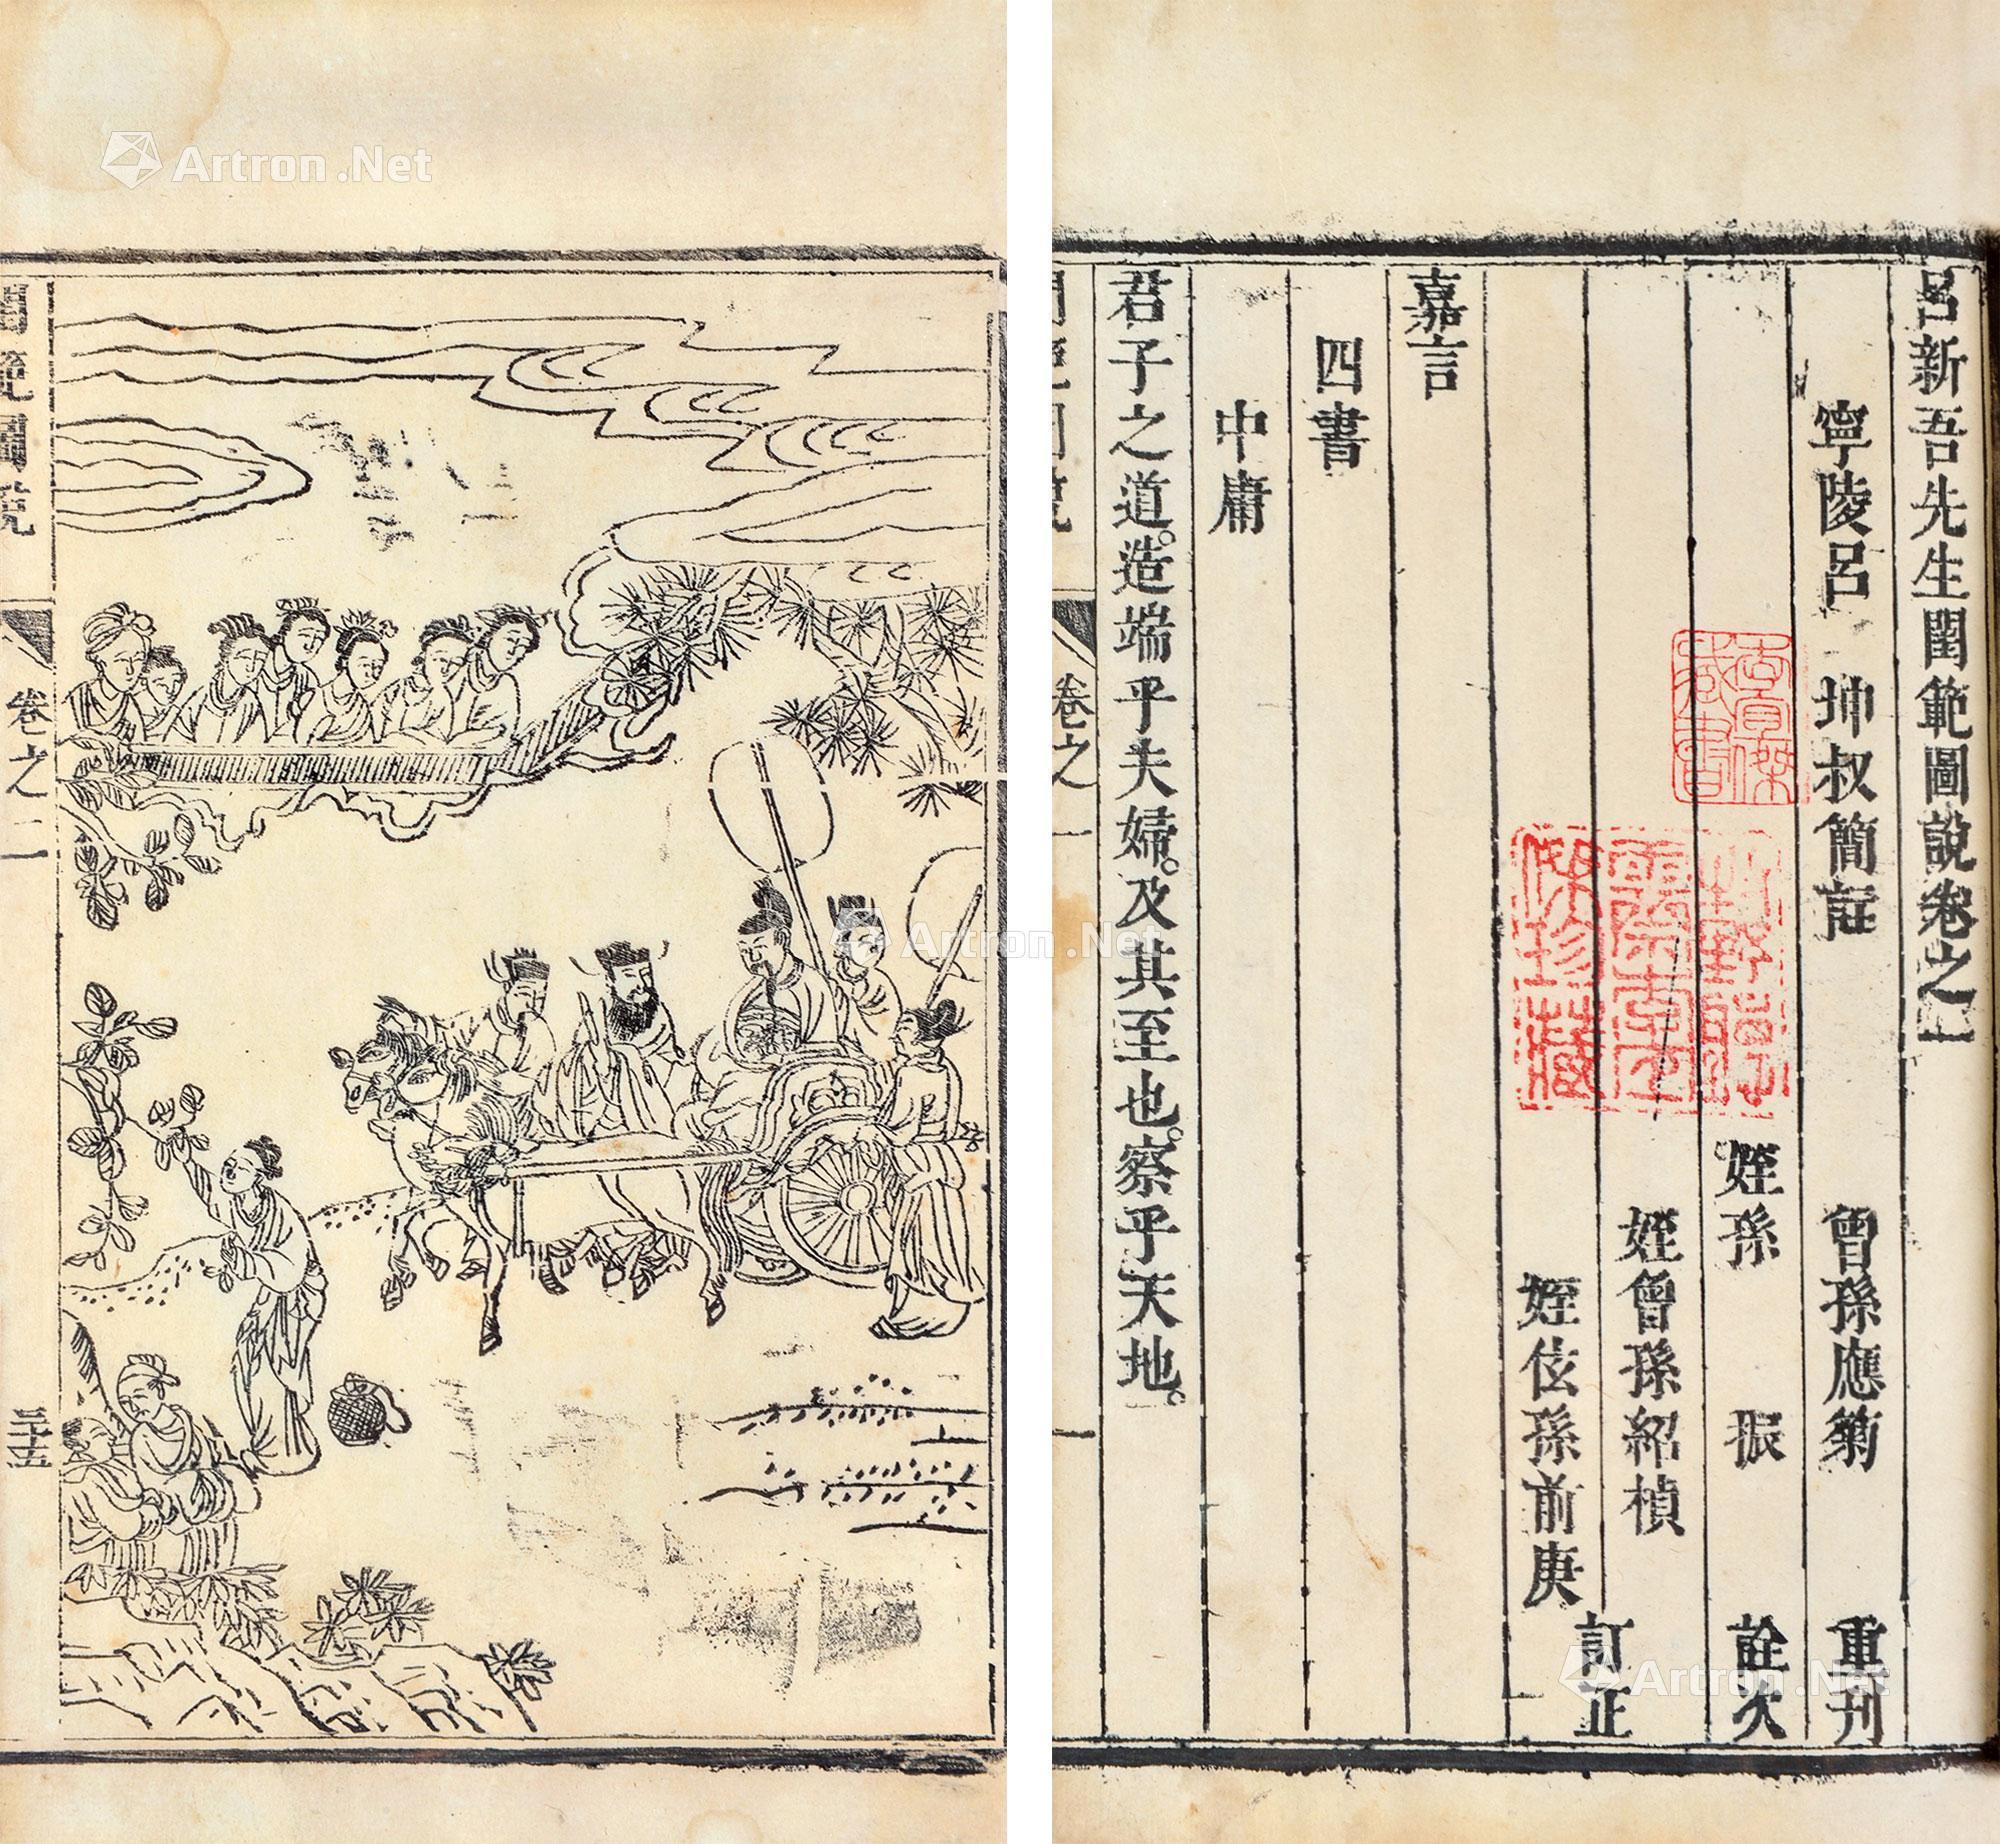 呂新吾先生閨範圖說卷之一
寧陵呂 坤叔簡註 曾孫應菊 重刊
姪孫 振 詮次
姪曾孫紹楨
姪伭孫前庚 訂正
嘉言
四書
中庸
君子之道。造端乎夫婦。及其至也。察乎天地。
卷之一
一
閨範圖說
卷之二
三十五
Artron.Net
Artron.Net
Artron.Net